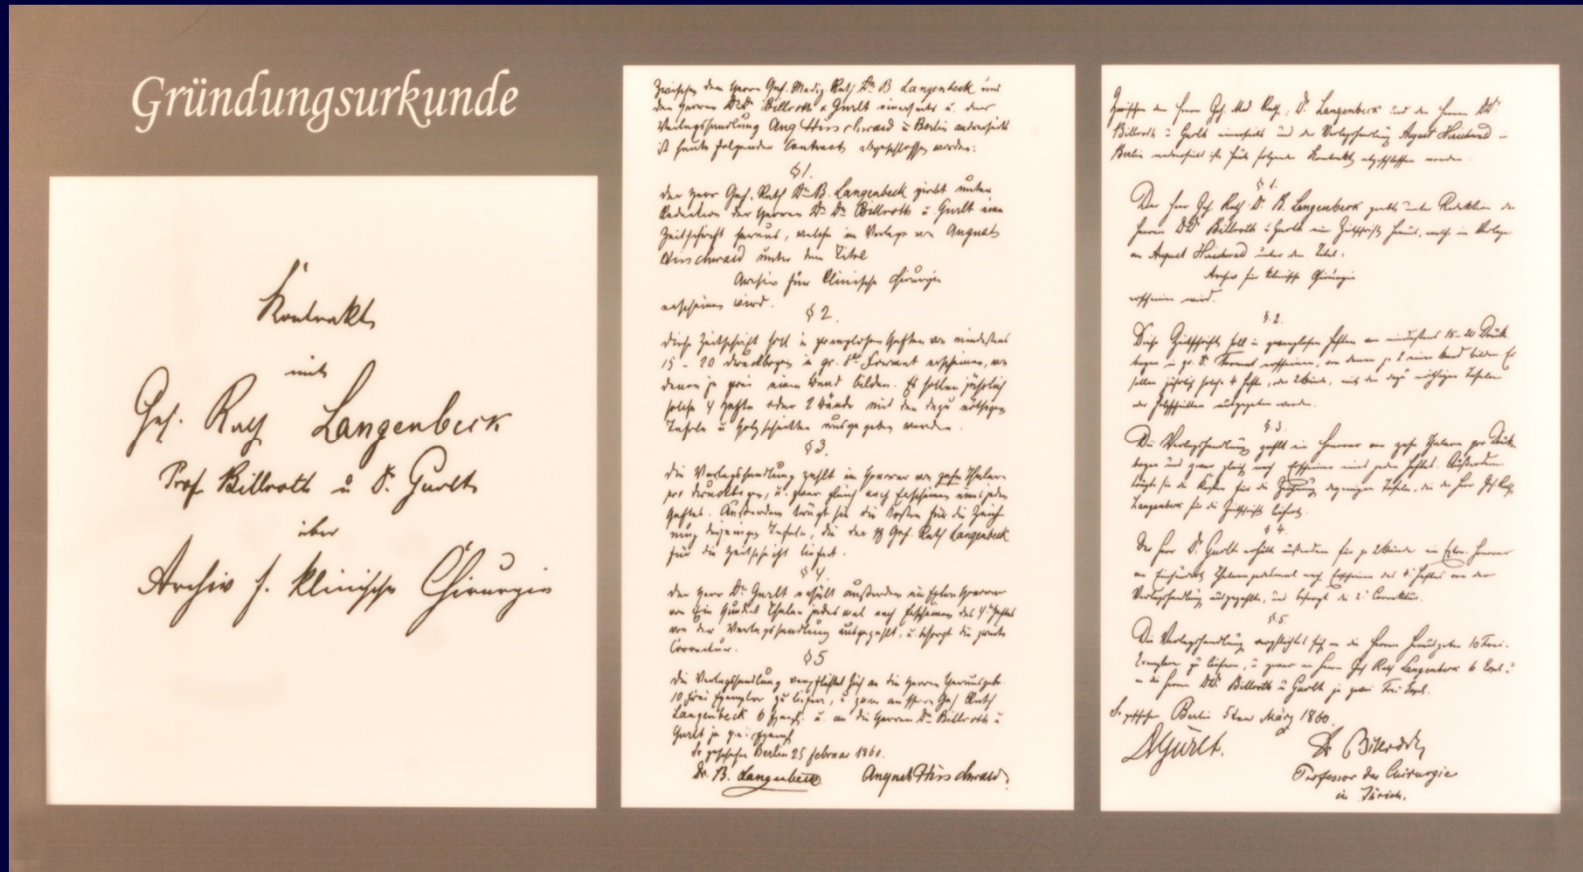 Gründungsurkunde
Kontrakt
mit
Geh. Rath Langenbeck
Prof Billroth u Dr. Gurlt
über
Archiv f. klinische Chirurgie
Zwischen dem Herrn Geh. Mediz. Rath Dr. B Langenbeck und
den Herren DrDr Billroth u Gurlt einerseits u. der
Verlagshandlung Aug Hirschwald in Berlin andererseits
ist heute folgender Contract abgeschlossen worden:
§ 1.
Der Herr Geh. Rath Dr B. Langenbeck giebt unter
Redaction der Herren Dr Dr Billroth u Gurlt eine
Zeitschrift heraus, welche im Verlage von August
Hirschwald unter dem Titel
Archiv für klinische Chirurgie
erscheinen wird.
§ 2.
Diese Zeitschrift soll in zwanglosen Heften von mindestens
15 - 20 Druckbogen in gr. 8° Format erscheinen, von
denen je zwei einen Band bilden. Es sollen jährlich
solche 4 Hefte oder 2 Bände mit den dazu nöthigen
Tafeln u Holzschnitten ausgegeben werden.
§ 3.
Die Verlagshandlung zahlt ein Honorar von zehn Thalern
pro Druckbogen, u. zwar gleich nach Erscheinen eines jeden
Heftes. Außerdem trägt sie die Kosten für die Zeich
nung derjenigen Tafeln, die der H Geh. Rath Langenbeck
für die Zeitschrift liefert.
§ 4.
Der Herr Dr. Gurlt erhält außerdem ein Honorar
von Ein Hundert Thalern jedes mal nach Erscheinen des 4t Heftes
von der Verlagshandlung ausgezahlt, u besorgt die zweite
Correctur.
§ 5
Die Verlagshandlung verpflichtet sich an die Herren Herausgeber
10 frei Exemplar zu liefern, u zwar an Herrn Geh Rath
Langenbeck 6 Exempl. u. an die Herren Dr Billroth u
Gurlt je zwei Exempl
So geschehen Berlin 25 Februar 1860.
Dr. B. Langenbeck August Hirschwald
Zwischen dem Herrn Geh. Med. Rath, Dr. Langenbeck und den Herren DrDr
Billroth u Gurlt einerseits und der Verlagshandlung August Hirschwald in
Berlin andererseits ist heute folgender Kontrakt abgeschlossen worden.
§ 1.
Der Herr Geh. Rath Dr. B. Langenbeck giebt unter Redaktion der
Herren DrDr Billroth u Gurlt eine Zeitschrift heraus, welche im Verlage
von August Hirschwald unter dem Titel:
Archiv für klinische Chirurgie
erscheinen wird.
§ 2.
Diese Zeitschrift soll in zwanglosen Heften von mindestens 15-20 Druck
bogen in gr. 8. Format erscheinen, von denen je 2 einen Band bilden. Es
sollen jährlich solche 4 Hefte, oder 2 Bände, mit den dazu nöthigen Tafeln
oder Holzschnitten ausgegeben werden.
§ 3.
Die Verlagshandlung zahlt ein Honorar von zehn Thalern pro Druck
bogen und zwar gleich nach Erscheinen eines jeden Heftes. Außerdem
trägt sie die Kosten für die Zeichnung derjenigen Tafeln, die der Herr Geh Rath
Langenbeck für die Zeitschrift liefert.
§ 4.
Der Herr Dr. Gurlt erhält außerdem für je 2 Bände ein Honorar
von Einhundert Thalern jedesmal nach Erscheinen des 4t Heftes von der
Verlagshandlung ausgezahlt, und besorgt die 2t Correktur.
§ 5.
Die Verlagshandlung verpflichtet sich an die Herren Herausgeber 10 Frei-
Exemplare zu liefern, u zwar an Herrn Geh Rath Langenbeck 6 Expl. u
an die Herren DrDr. Billroth u Gurlt je zwei Frei Expl.
So geschehen Berlin 5ten März 1860.
Dr. Gurlt. Dr Billroth
Professor der Chirurgie
in Zürich.